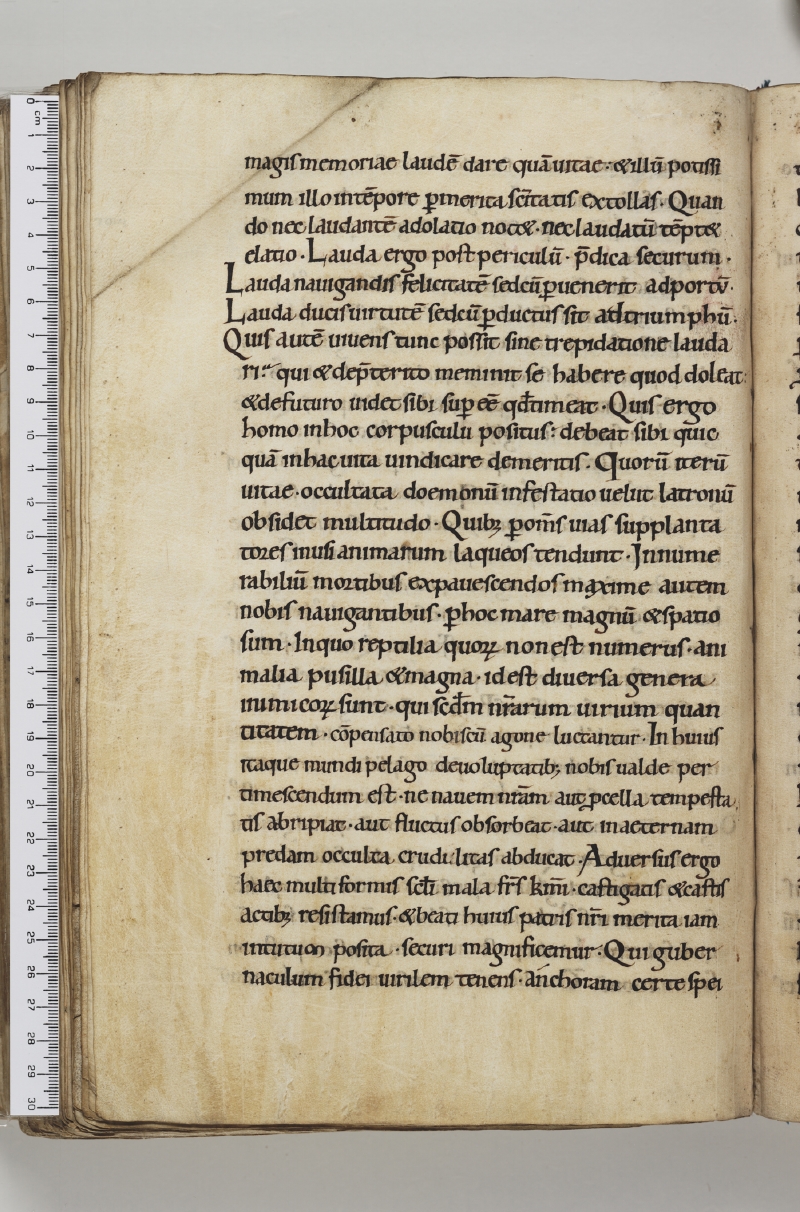 magiſ memoriae laudē dare quā uitae · & illū potiſſi
mum illo intēpore ꝑmerita ſc̄itatiſ extollaſ · Quan
do nec laudantē adolatio noc& · nec laudatū tēpt&
elatio · Lauda ergo poſt periculū · p̄dica ſecurum ·
Lauda nauigandiſ felicitatē ſed cū ꝑuenerit ad portū ·
Lauda duciſ uirtutē ſed cū ꝑductuſ ſit ad triumphū ·
Quiſ autē uiuenſ tunc poſſit ſine trepidatione lauda
ri · qui & de p̄terito meminit ſe habere quod doleat
& de futuro uidet ſibi ſuꝑ eē qđ timeat · Quiſ ergo
homo in hoc corpuſculū poſituſ : debeat ſibi quic
quā in hac uita uindicare de meritiſ · Quorū iterū
uitae · occultata doemonū infeſtatio uelut latronū
obſidet multitudo · Quibꝫ ꝑ om̄ſ uiaſ ſupplanta
toreſ inuſi animarum laqueoſ tendunt · Innume
rabiliū mortibuſ expaueſcendoſ maxime autem
nobiſ nauigantibuſ · ꝑ hoc mare magnū & ſpatio
ſum · In quo reptilia quoꝝ non eſt numeruſ · ani
malia puſilla & magna · id eſt diuerſa genera
inimicoꝝ ſunt · qui ſcđm nr̄arum uirium quan
titatem · cōpenſato nobiſcū agone luctantur · In huiuſ
itaque mundi pelago de uoluptatibꝫ nobiſ ualde per
timeſcendum eſt · ne nauem nr̄am aut ꝓcella tempeſta
tiſ abripiat · aut fluctuſ obſorbeat · aut in aeternam
predam occulta crudilitaſ abducat · Aduerſuſ ergo
haec multiformiſ ſcl̄i mala fr̄ſ km̄i · caſtigatiſ & caſtiſ
actibꝫ reſiſtamuſ · & beati huiuſ patriſ nr̄i merita iam
in tuition poſita · ſecuri magnificemur · Qui guber
naculum fidei uirilem tenenſ · anchoram certe ſpei